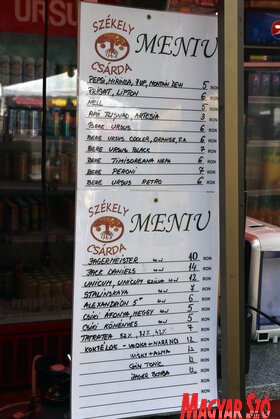 SZÉKELY
CSÁRDA
MENIU
PEPSI, MIRINDA, 7UP, MONTAIN DEW 5 RON
PRIGAT, LIPTON 6 RON
HELL 5 RON
APĂ TUȘNAD, ARTESIA 3 RON
BERE URSUS 6 RON
BERE URSUS COOLER, 6 RON
BERE URSUS BLACK 7 RON
BERE TIMIȘOREANA 6 RON
BERE PERONI 7 RON
BERE URSUS RETRO 6 RON
SZÉKELY
CSÁRDA
MENIU
JÄGERMEISTER 10 RON
JACK DANIELS 14 RON
UNICUM, UNICUM SZILVA 12 RON
STALINSKAYA 7 RON
ALEXANDRION 5* 6 RON
CSÍKI ÁFONYA, MEGGY 5 RON
CSÍKI KÖMÉNYES 5 RON
TATRATEA 52%, 32% 42% 7 RON
KOKTÉLOK - VODKA + NARANCS 12 RON
WISKY + ALMA 12
GIN TONIC 12
JAGER BOMBA 12
MAGYAR SZÓ